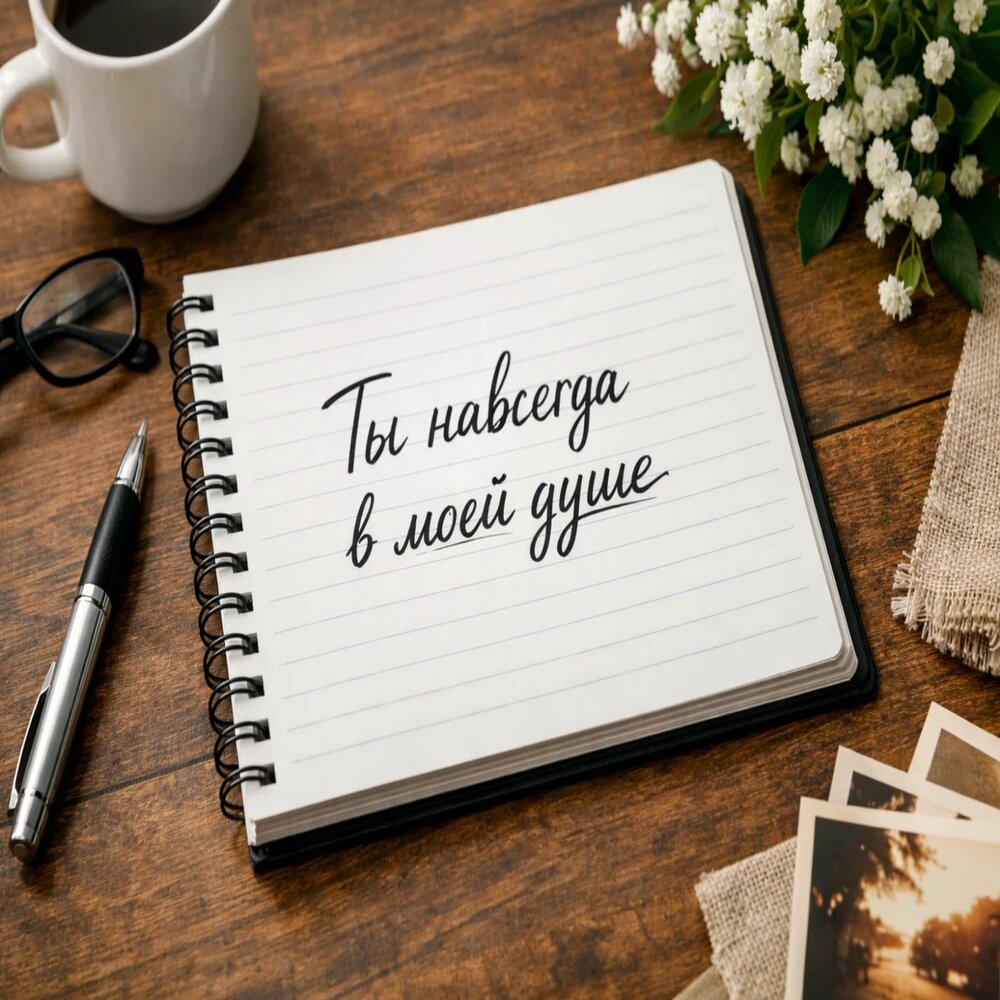 Ты навсегда
в моей душе